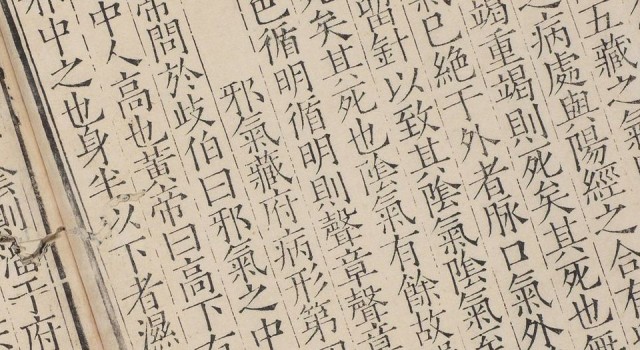 五藏之氣
之病處與陽經之合有
竭重竭則死矣其死也無
氣已絕于外者脉口氣外
留針以致其陰氣陰氣至
死矣其死也陰氣有餘故
色循明循明則聲章聲章
邪氣藏府病形第
帝問於歧伯曰邪氣之中
中人高也黃帝曰高下有
邪中之也身半以下者濕
則溜于府